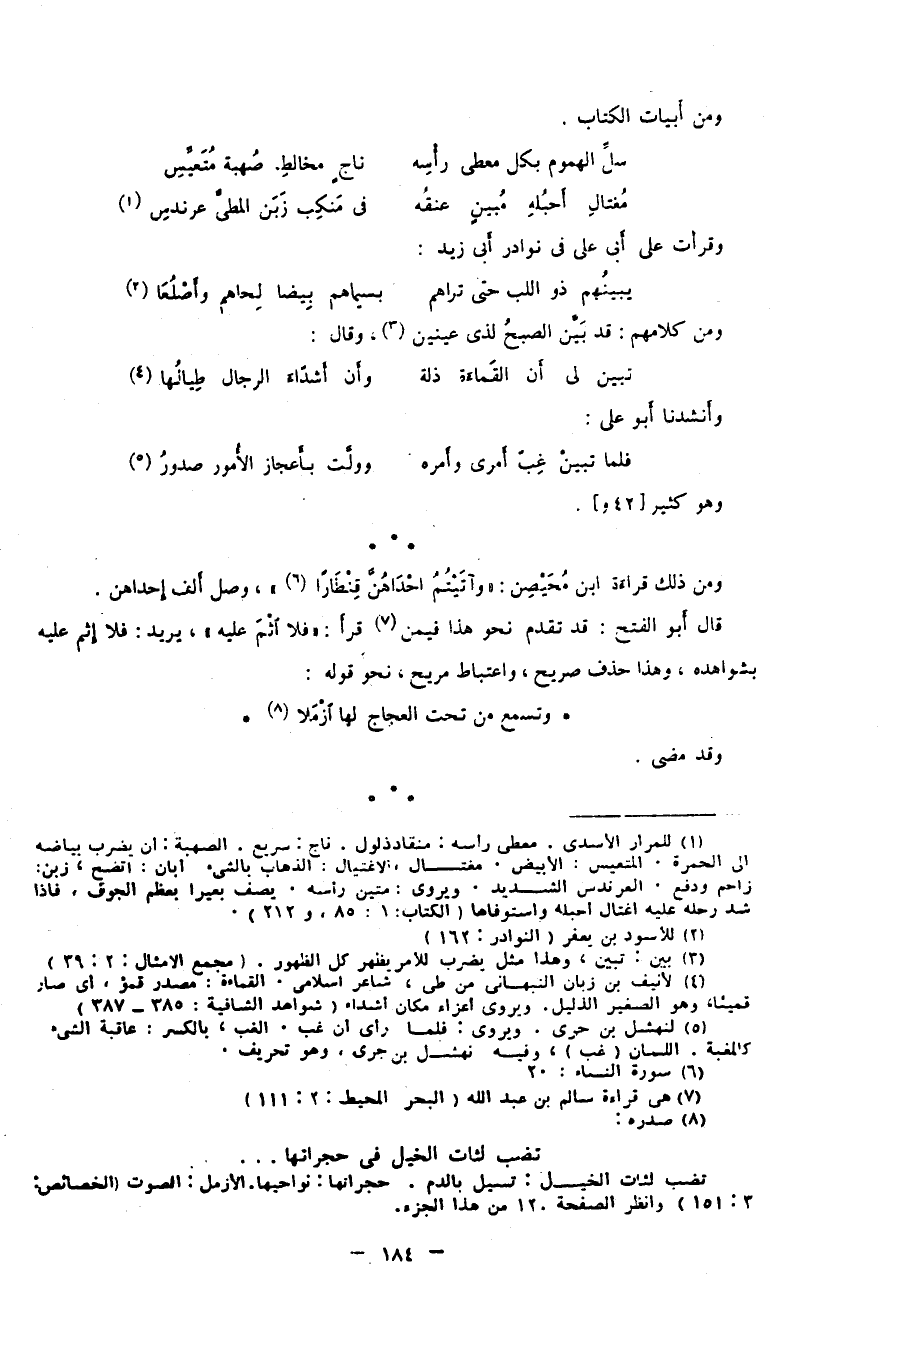 ومن أبيات الكتاب .
سلِّ الهموم بكل معطى رأسِه ناجٍ مخالطِ. صُهبة مُتَعيَّسِ
مُغتالِ أحبُلهِ مُبينٍ عنقُه فى مَنكِب زَبَن المطىَّ عرندسِ (١)
وقرأت على أبى على فى نوادر أبى زيد :
يبينُهم ذو اللب حتى تراهم بسيماهم بِيضا لِحاهم وأَصْلُعَا (٢)
ومن كلامهم : قد بَيَّن الصبحُ لذى عينين (٣) ، وقال :
تبين لى أن القَماءة ذلة وأن أشدَّاء الرجال طِيالُها (٤)
وأنشدنا أبو على :
فلما تبينْ غِبّ أمرى وأمره وولَّت بأعجاز الأُمور صدورُ (٥)
وهو كثير [ ٤٢ و] .
* * *
ومن ذلك قراءة ابن مُحَيْصِن : «وآتَيْتُمُ احْدَاهُنَّ قِنْطَارًا (٦) » ، وصل ألف إحداهن .
قال أبو الفتح : قد تقدم نحو هذا فيمن (٧) قرأ : «فلا اثْمَ عليه » ، يريد : فلا إثم عليه
بشواهده ، وهذا حذف صريح ، واعتباط مريح ، نحو قوله :
* وتسمع من تحت العجاج لها ازْمَلا (٨) *
وقد مضى .
* * *
(١) للمرار الأسدى . معطى رأسه : منقاد ذلول . ناج : سريع . الصهبة : أن يضرب بياضه
الى الحمرة . المتعيس : الأبيض . مغتال ، الاغتيال : الذهاب بالشىء . أبان : اتضح ، زبن:
زاحم ودفع . العرندس الشديد . ويروى : متين رأسه . يصف بعيرا بعظم الجوف ، فاذا
شد رحله عليه اغتال أحبله واستوفاها ( الكتاب: ١ : ٨٥ ، و ٢١٢ ) .
(٢) للأسود بن يعفر ( النوادر : ١٦٢ )
(٣) بين : تبين ، وهذا مثل يضرب للأمر يظهر كل الظهور . ( مجمع الامثال : ٢ : ٣٩ )
(٤) لأنيف بن زبان النبهانى من طى ، شاعر اسلامى . القماءة : مصدر قمؤ ، أى صار
قميئا، وهو الصغير الذليل. ويروى أعزاء مكان أشداء ( شواهد الشافية : ٣٨٥ ــ ٣٨٧ )
(٥) لنهشل بن حرى . ويروى : فلما رأى أن غب . الغب ، بالكسر : عاقبة الشىء
كالمغبة . اللسان ( غب ) ، وفيه نهشل بن جرى ، وهو تحريف .
(٦) سورة النساء : ٢٠
(٧) هى قراءة سالم بن عبد الله ( البحر المحيط : ٢ : ١١١ )
(٨) صدره :
تضب لثات الخيل فى حجراتها ...
تضب لثات الخيل : تسيل بالدم . حجراتها : نواحيها. الأزمل : الصوت (الخصائص:
٣ : ١٥١ ) وانظر الصفحة ١٢٠ من هذا الجزء.
– ١٨٤ –